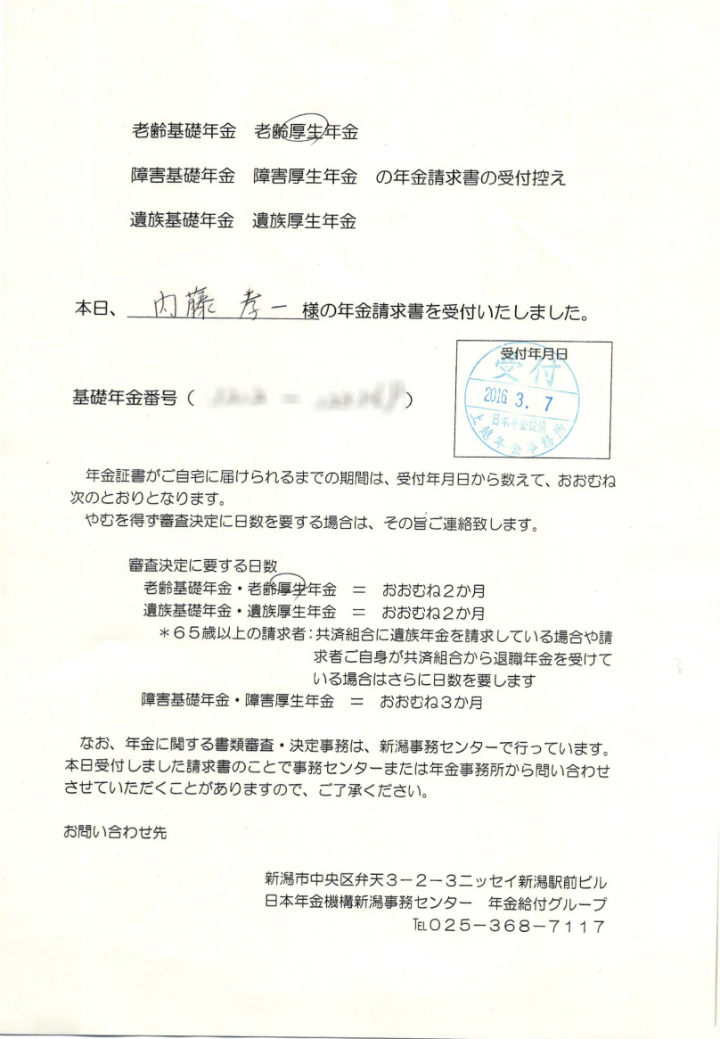 老齢基礎年金　老齢厚生年金
障害基礎年金　障害厚生年金　の年金請求書の受付控え
遺族基礎年金　遺族厚生年金
本日、 内藤 孝一 様の年金請求書を受付いたしました。
受付年月日
受付
2016. 3. 7
日本年金機構
上越年金事務所
基礎年金番号（　　　）
年金証書がご自宅に届けられるまでの期間は、受付年月日から数えて、おおむね
次のとおりとなります。
やむを得ず審査決定に日数を要する場合は、その旨ご連絡致します。
審査決定に要する日数
老齢基礎年金・老齢厚生年金　＝　おおむね２か月
遺族基礎年金・遺族厚生年金　＝　おおむね２か月
＊６５歳以上の請求者：共済組合に遺族年金を請求している場合や請
求者ご自身が共済組合から退職年金を受けて
いる場合はさらに日数を要します
障害基礎年金・障害厚生年金　＝　おおむね３か月
なお、年金に関する書類審査・決定事務は、新潟事務センターで行っています。
本日受付しました請求書のことで事務センターまたは年金事務所から問い合わせ
させていただくことがありますので、ご了承ください。
お問い合わせ先
新潟市中央区弁天３－２－３ニッセイ新潟駅前ビル
日本年金機構新潟事務センター　年金給付グループ
℡０２５－３６８－７１１７